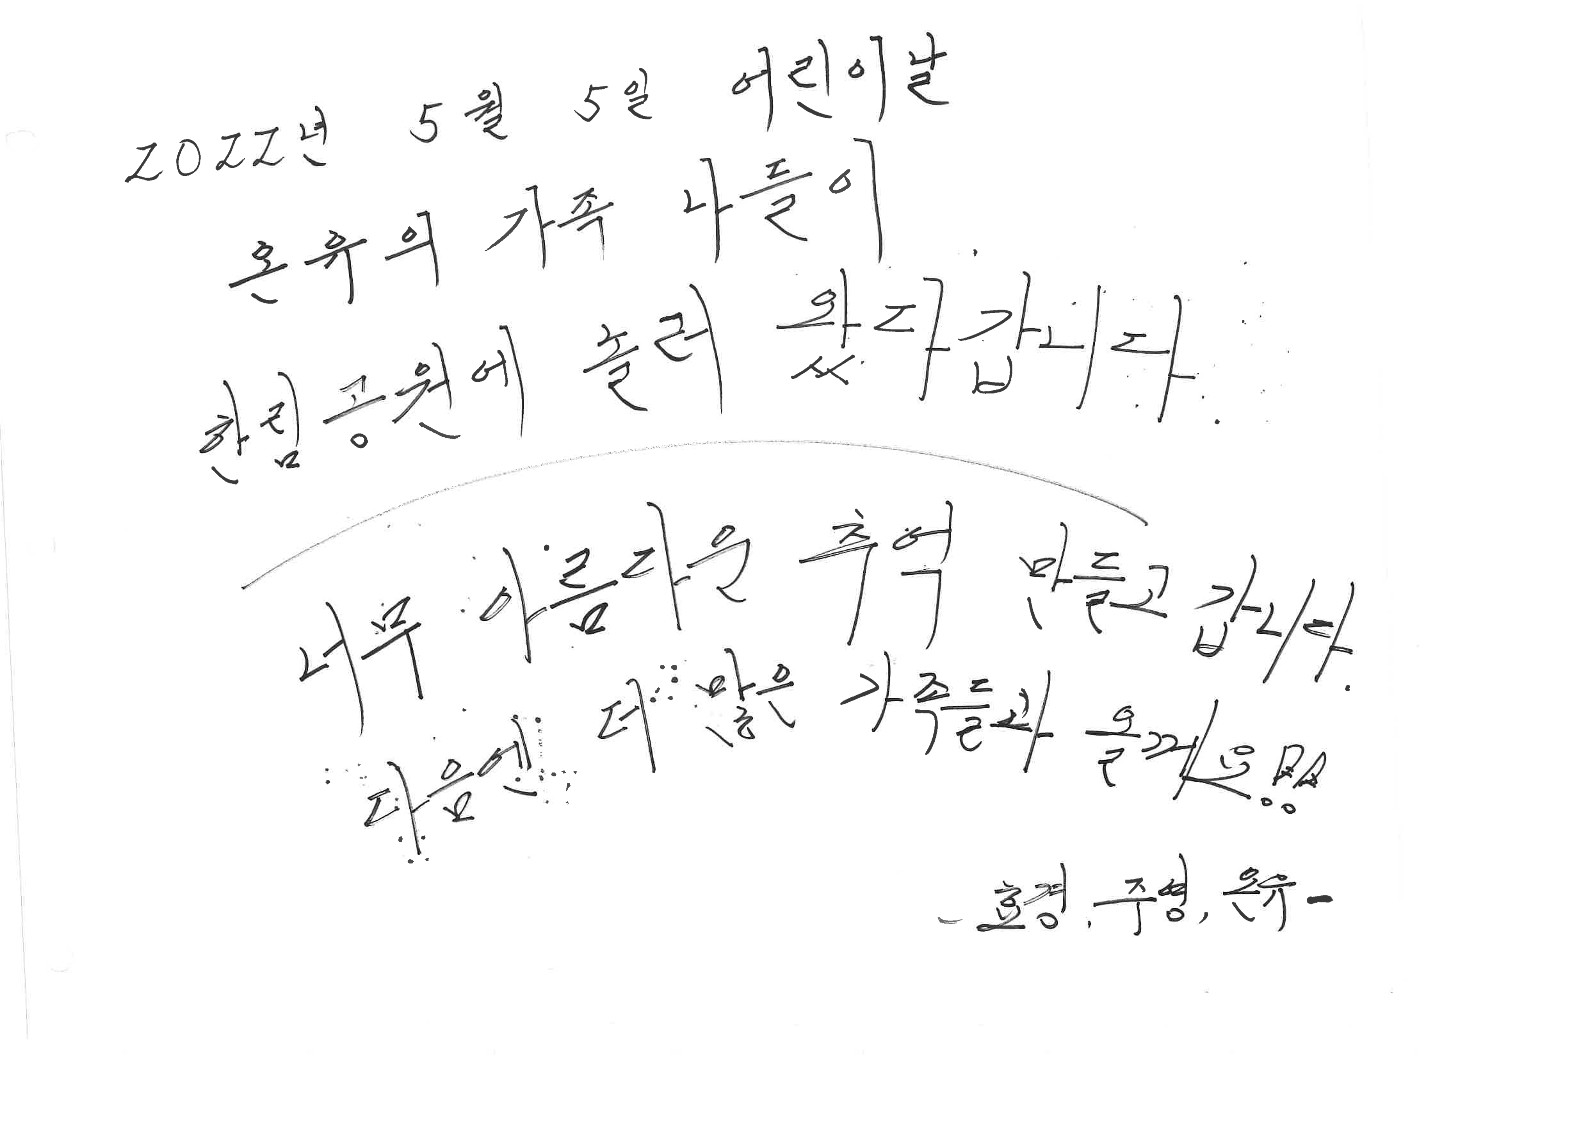 2022년 5월 5일 어린이날
온유의 가족 나들이
한림공원에 놀러 왔다갑니다.
너무 아름다운 추억 만들고 갑니다.
다음엔 더 많은 가족들과 올께요!!
- 효경, 주영, 온유 -